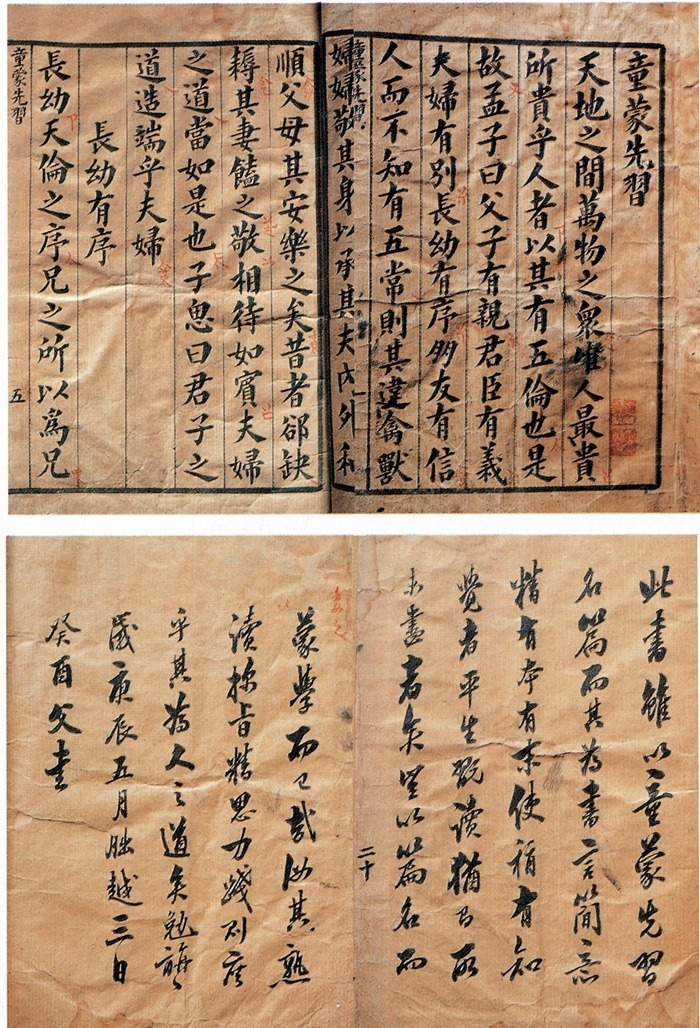 童蒙先習
天地之間萬物之衆惟人最貴
所貴乎人者以其有五倫也是
故孟子曰父子有親君臣有義
夫婦有別長幼有序朋友有信
人而不知有五常則其違禽獸
童蒙先習
婦婦敬其身以承其夫內外和
順父母其安樂之矣昔者郤缺
耨其妻饁之敬相待如賓夫婦
之道當如是也子思曰君子之
道造端乎夫婦
長幼有序
長幼天倫之序兄之所以爲兄
童蒙先習
五
此書雖以童蒙先習
名篇而其爲書言簡意
精有本有末使稍有知
覺者平生熟讀猶有所
未盡者矣豈以篇名而
二十
蒙學而已哉汝其熟
讀探旨精思力踐則庶
乎其爲人之道矣勉旃
歲庚辰五月朏越三日
癸酉父書